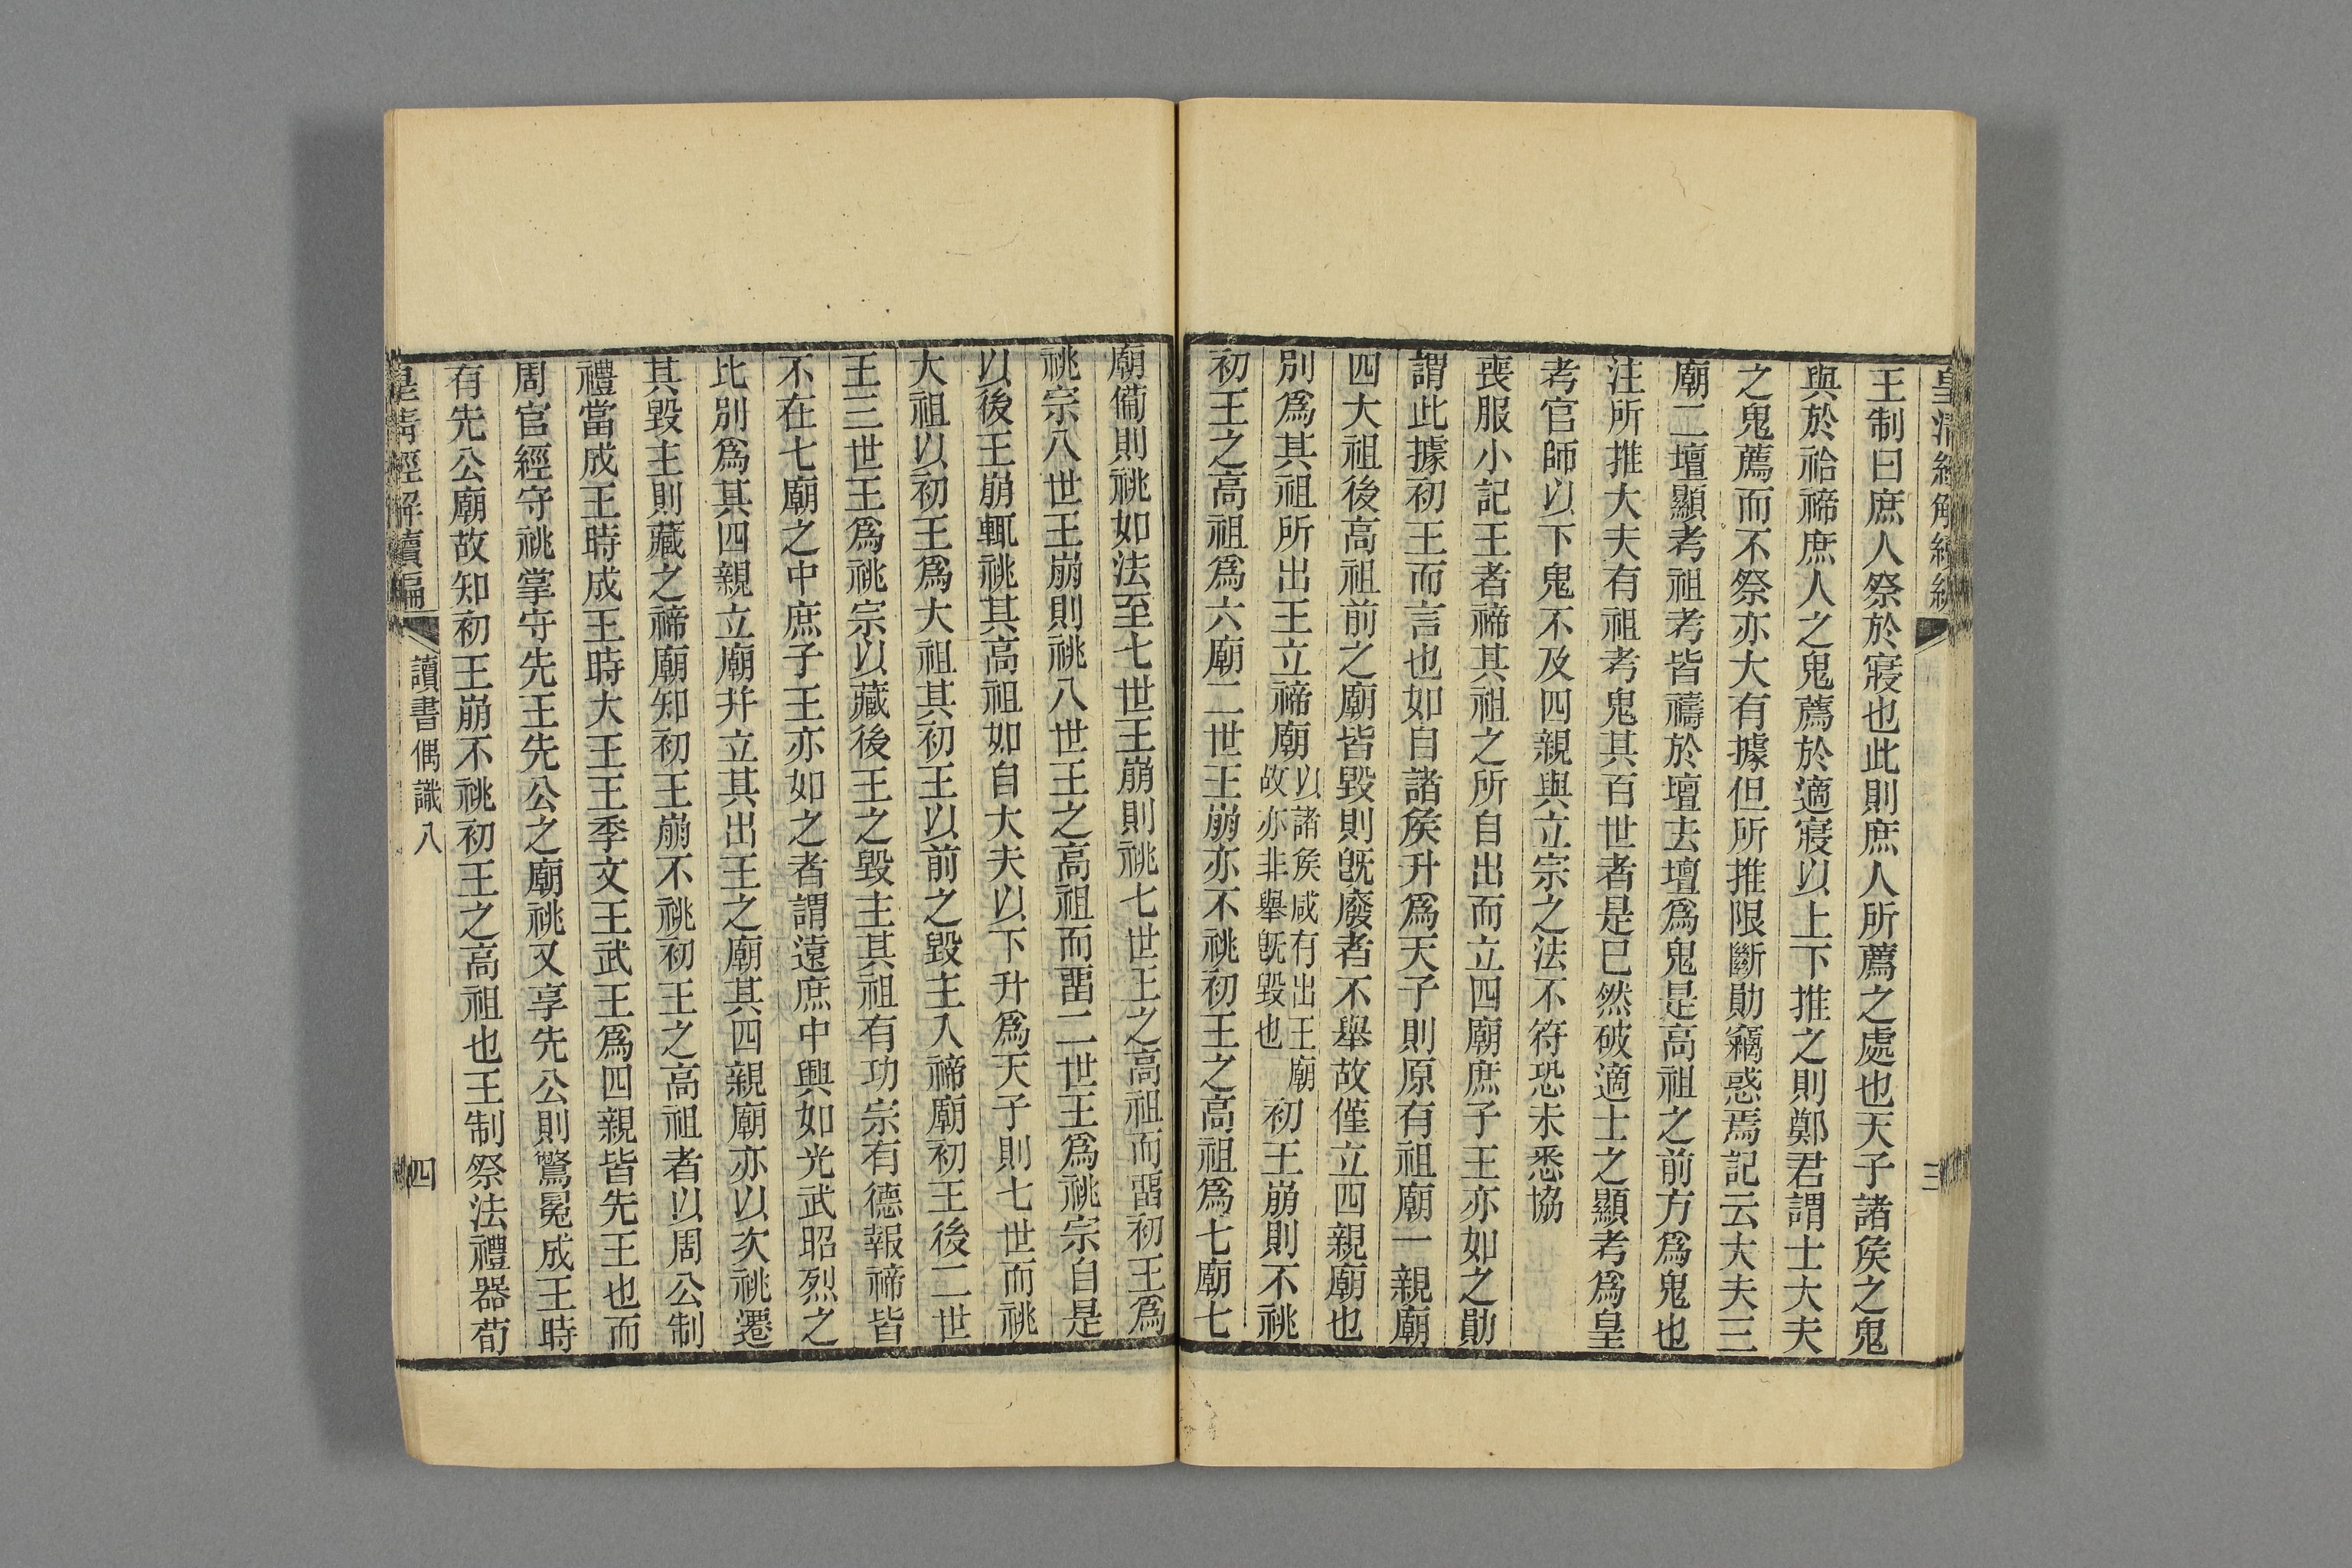 皇清經解續編
三
王制曰庶人祭於寢也此則庶人所薦之處也天子諸矦之鬼
與於祫禘庶人之鬼薦於適寢以上下推之則鄭君謂士大夫
之鬼薦而不祭亦大有據但所推限斷勛竊惑焉記云大夫三
廟二壇顯考祖考皆禱於壇去壇爲鬼是高祖之前方爲鬼也
注所推大夫有祖考鬼其百世者是巳然破適士之顯考爲皇
考官師以下鬼不及四親與立宗之法不符恐未悉協
喪服小記王者禘其祖之所自出而立四廟庶子王亦如之勛
謂此據初王而言也如自諸矦升爲天子則原有祖廟一親廟
四大祖後高祖前之廟皆毀則旣廢者不舉故僅立四親廟也
別爲其祖所出王立禘廟以諸矦咸有出王廟故亦非舉旣毀也初王崩則不祧
初王之高祖爲六廟二世王崩亦不祧初王之高祖爲七廟七
廟備則祧如法至七世王崩則祧七世王之高祖而畱初王爲
祧宗八世王崩則祧八世王之高祖而畱二世王爲祧宗自是
以後王崩輒祧其高祖如自大夫以下升爲天子則七世而祧
大祖以初王爲大祖其初王以前之毀主入禘廟初王後二世
王三世王爲祧宗以藏後王之毀主其祖有功宗有德報禘皆
不在七廟之中庶子王亦如之者謂遠庶中興如光武昭烈之
比別爲其四親立廟幷立其出王之廟其四親廟亦以次祧遷
其毀主則藏之禘廟知初王崩不祧初王之高祖者以周公制
禮當成王時成王時大王王季文王武王爲四親皆先王也而
周官經守祧掌守先王先公之廟祧又享先公則鷩冕成王時
有先公廟故知初王崩不祧初王之高祖也王制祭法禮器荀
皇清經解續編
讀書偶識八
四